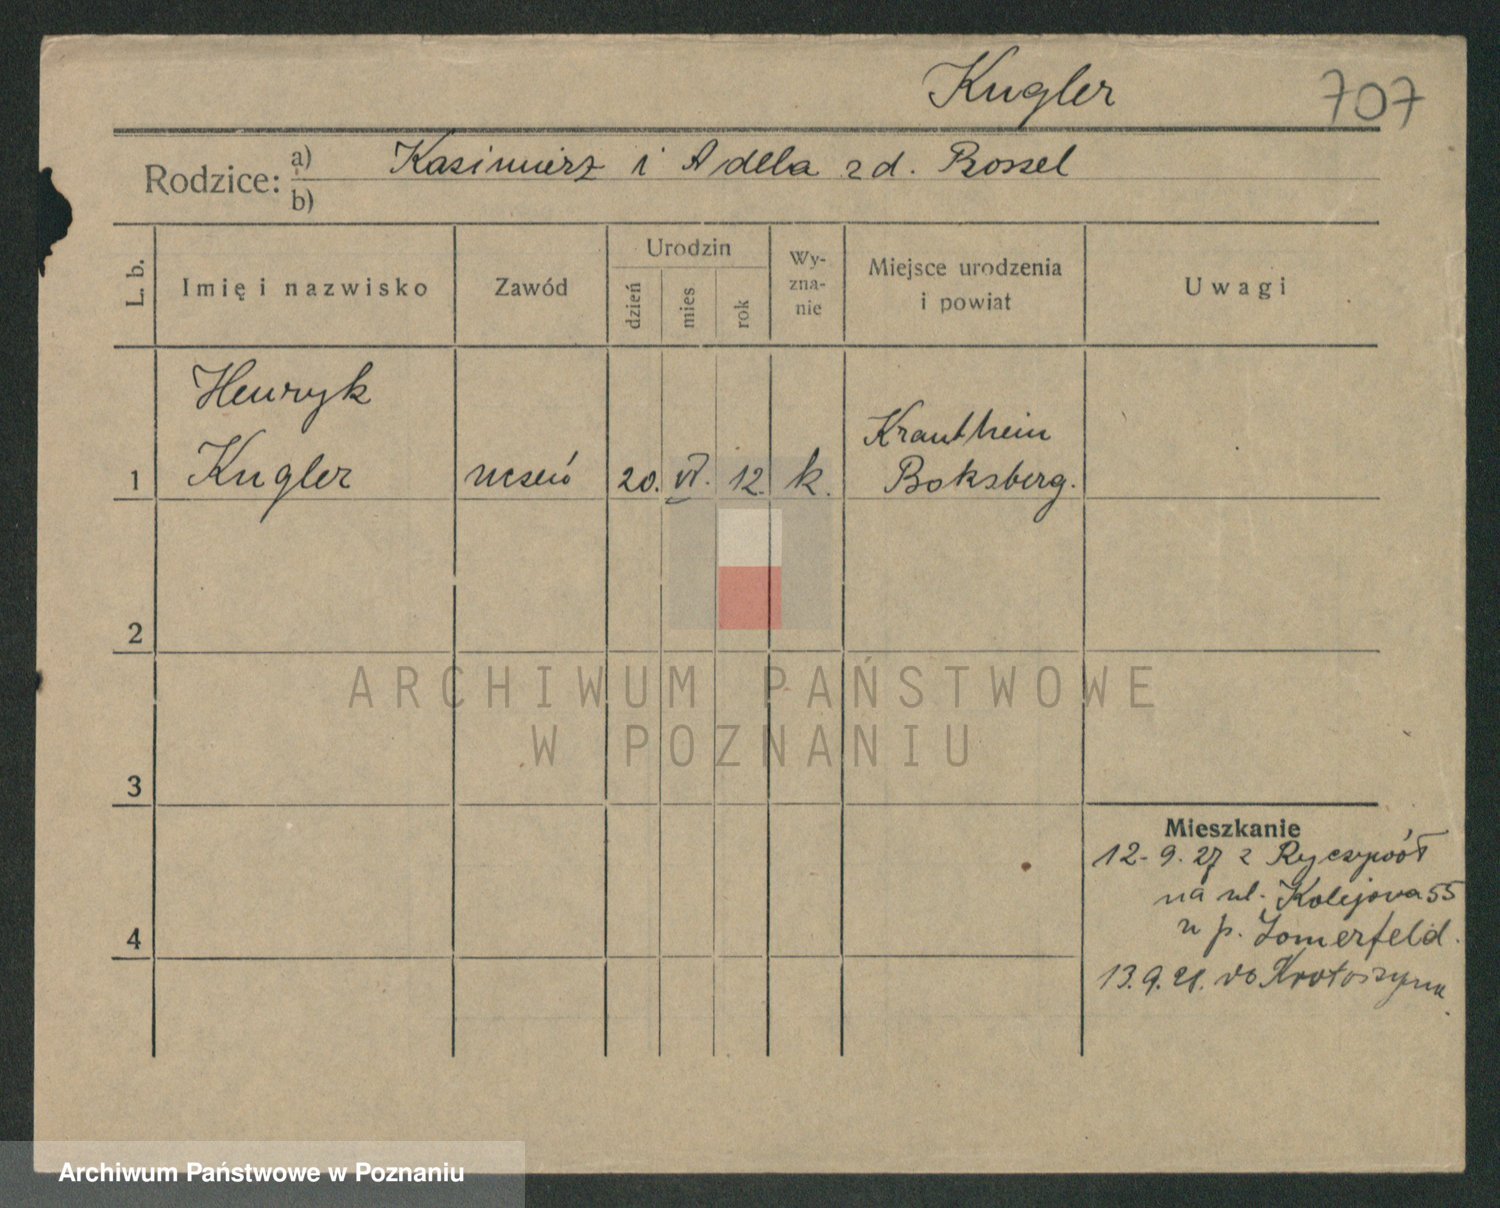 Kugler 707
Rodzice: a) Kasimierz i Adela zd. Bossel
b)
L. b.
Imię i nazwisko
Zawód
Urodzin
dzień
mies
rok
Wy-
zna-
nie
Miejsce urodzenia
i powiat
Uwagi
Henryk
Kugler
1
uczeń 20. VI. 12. k.
Krautheim
Boksberg.
2
ARCHIWUM PAŃSTWOWE
W POZNANIU
3
Mieszkanie
12-9.27 z Ryczywół
na ul. Kolejowa 55
u p. Zomerfeld.
4
13.9. do Krotoszyna.
Archiwum Państwowe w Poznaniu